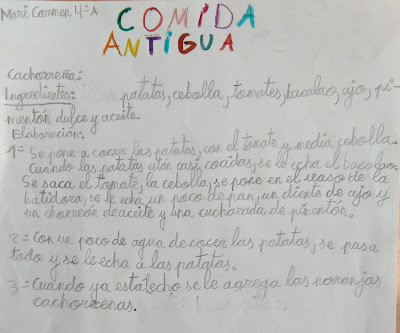 Mari Carmen 4ºA
COMIDA
ANTIGUA
Cachorreña:
Ingredientes: patatas, cebolla, tomates, bacalao, ajo, pi-
mentón dulce y aceite.
Elaboración:
1- Se pone a cocer las patatas, con el tomate y media cebolla.
Cuando las patatas están casi cocidas, se le echa el bacalao.
Se saca el tomate, la cebolla, se pone en el vaso de la
batidora, se le echa un poco de pan, un diente de ajo y
un chorreón de aceite y una cucharada de pimentón.
2- Con un poco de agua de cocer las patatas, se pasa
todo y se le echa a las patatas.
3- Cuando ya está echo se le agrega las naranjas
cachorrenas.